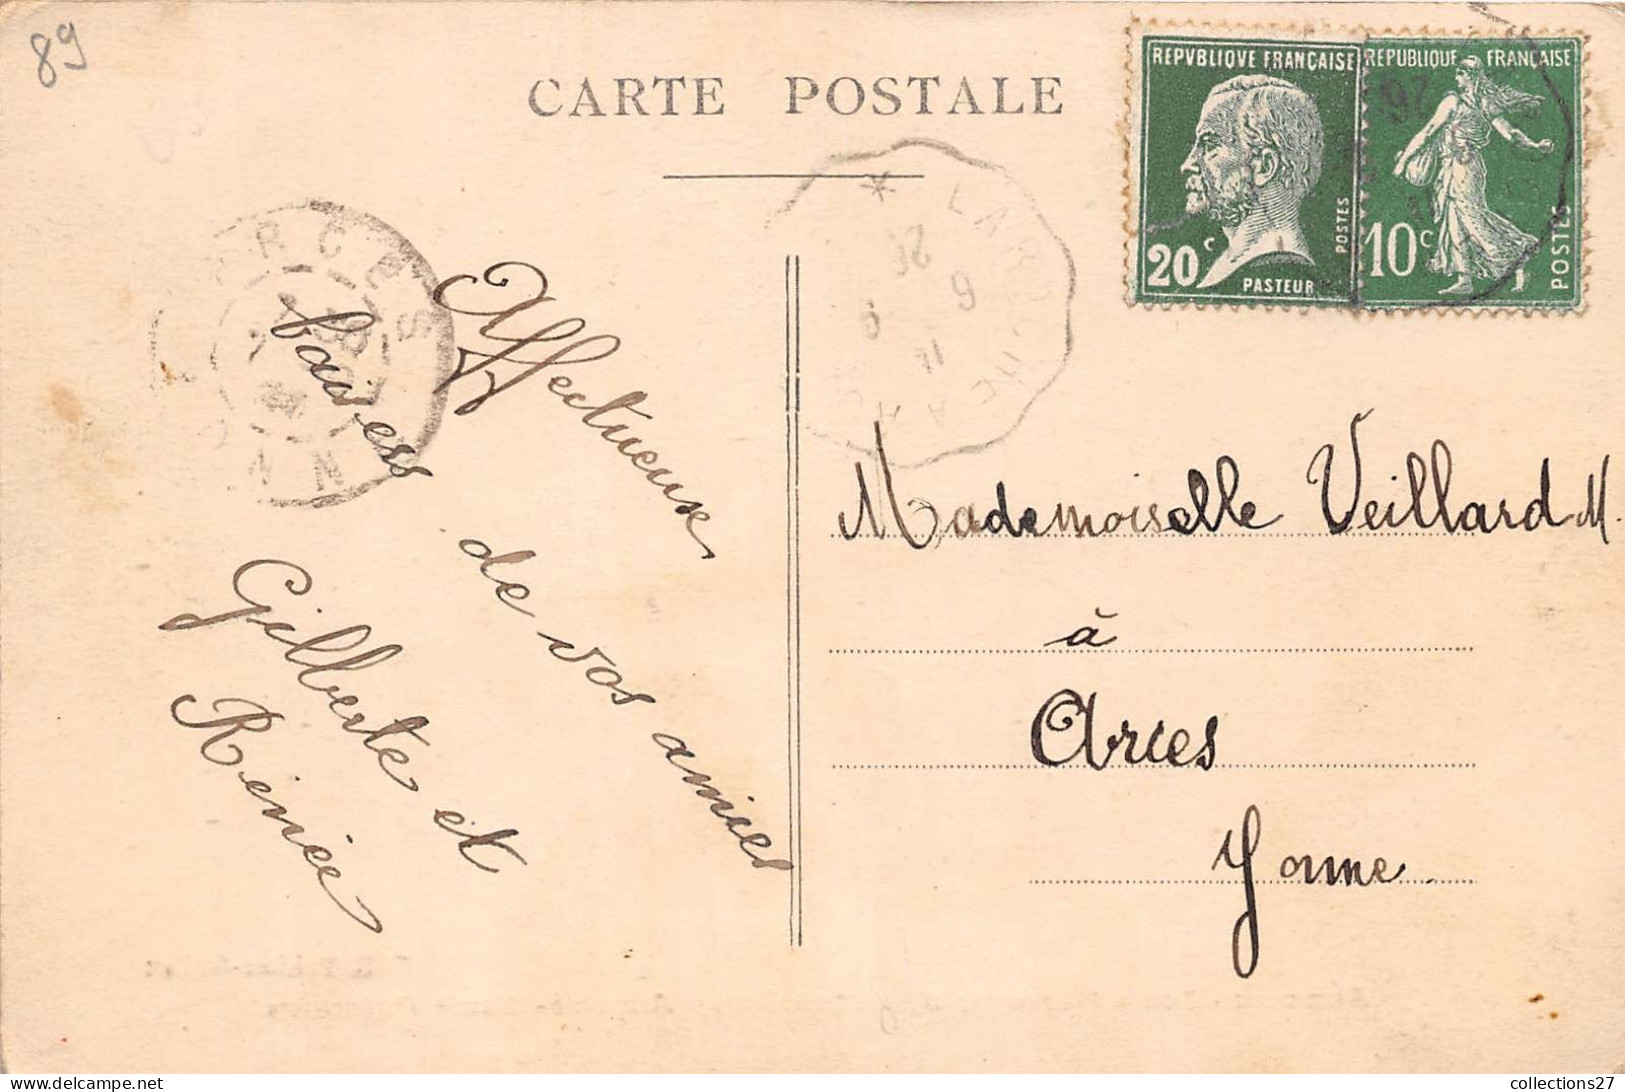 89
CARTE POSTALE
REPVBLIQVE FRANÇAISE
POSTES
20c
PASTEUR
REPUBLIQUE FRANÇAISE
10c
POSTES
26
ARCES
YONNE
* LAROCHE A
Affectueuse
baisers
de vos amies
Gilberte et
Renée
Mademoiselle Veillard M.
à
Arces
Yonne.
collections27